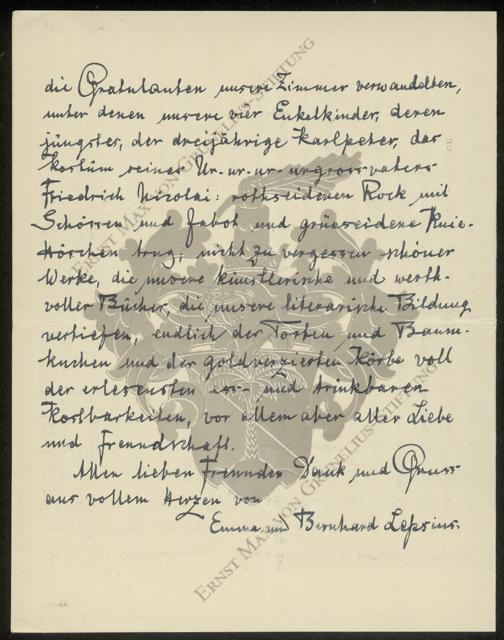 die Gratulanten unsere Zimmer verwandelten,
unter denen unsere vier Enkelkinder, deren
jüngstes, der dreijährige Karlpeter, das
Kostüm seines Ur-ur-ur-urgrossvaters
Friedrich Nicolai: rothseidenen Rock mit
Schössen und Jabot und grünseidene Knie-
höschen trug; nicht zu vergessen schöner
Werke, die unsere künstlerische und werth-
voller Bücher, die unsere literarische Bildung
vertiefen, endlich der Torten und Baum-
kuchen und der goldverzierten Körbe voll
der erlesensten ess- und trinkbaren
Kostbarkeiten, vor allem aber aller Liebe
und Freundschaft.
Allen lieben Freunden Dank und Gruss
aus vollem Herzen von
Emma und Bernhard Lepsius.
ERNST MAX VON GRUNELIUS-STIFTUNG
ERNST MAX VON GRUNELIUS-STIFTUNG